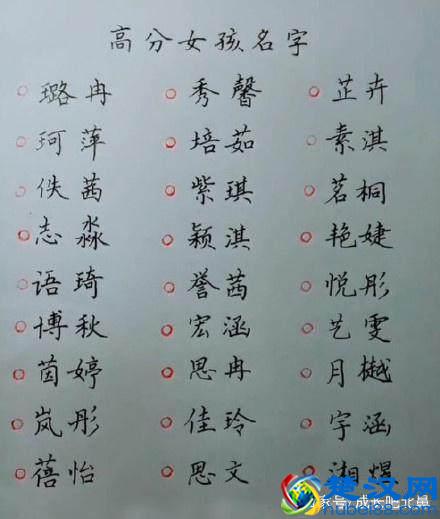 高分女孩名字
璐冉 秀馨 芷卉
珂萍 培茹 素淇
佚茜 紫琪 茗桐
志淼 颖淇 艳婕
语琦 誉茜 悦彤
博秋 宏涵 艺雯
茵婷 思冉 月樾
岚彤 佳玲 宇涵
蓓怡 思文 湘煜
家号
楚汉网
hubei88.com